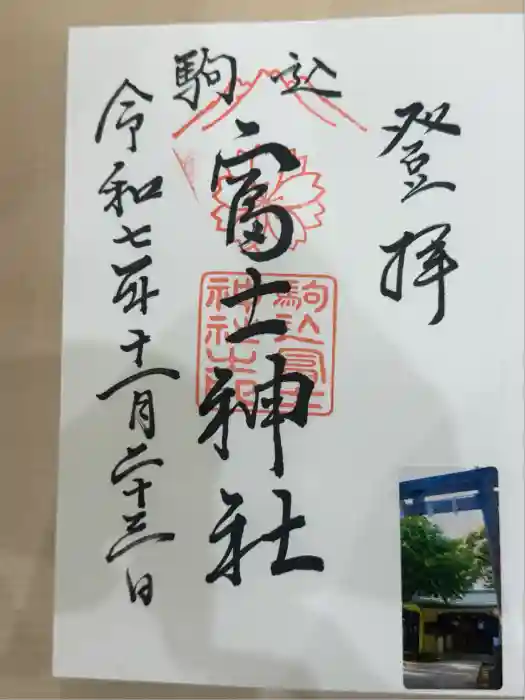 登拝
駒込
富士神社
駒込冨士
神社之印
令和七年十一月二十三日